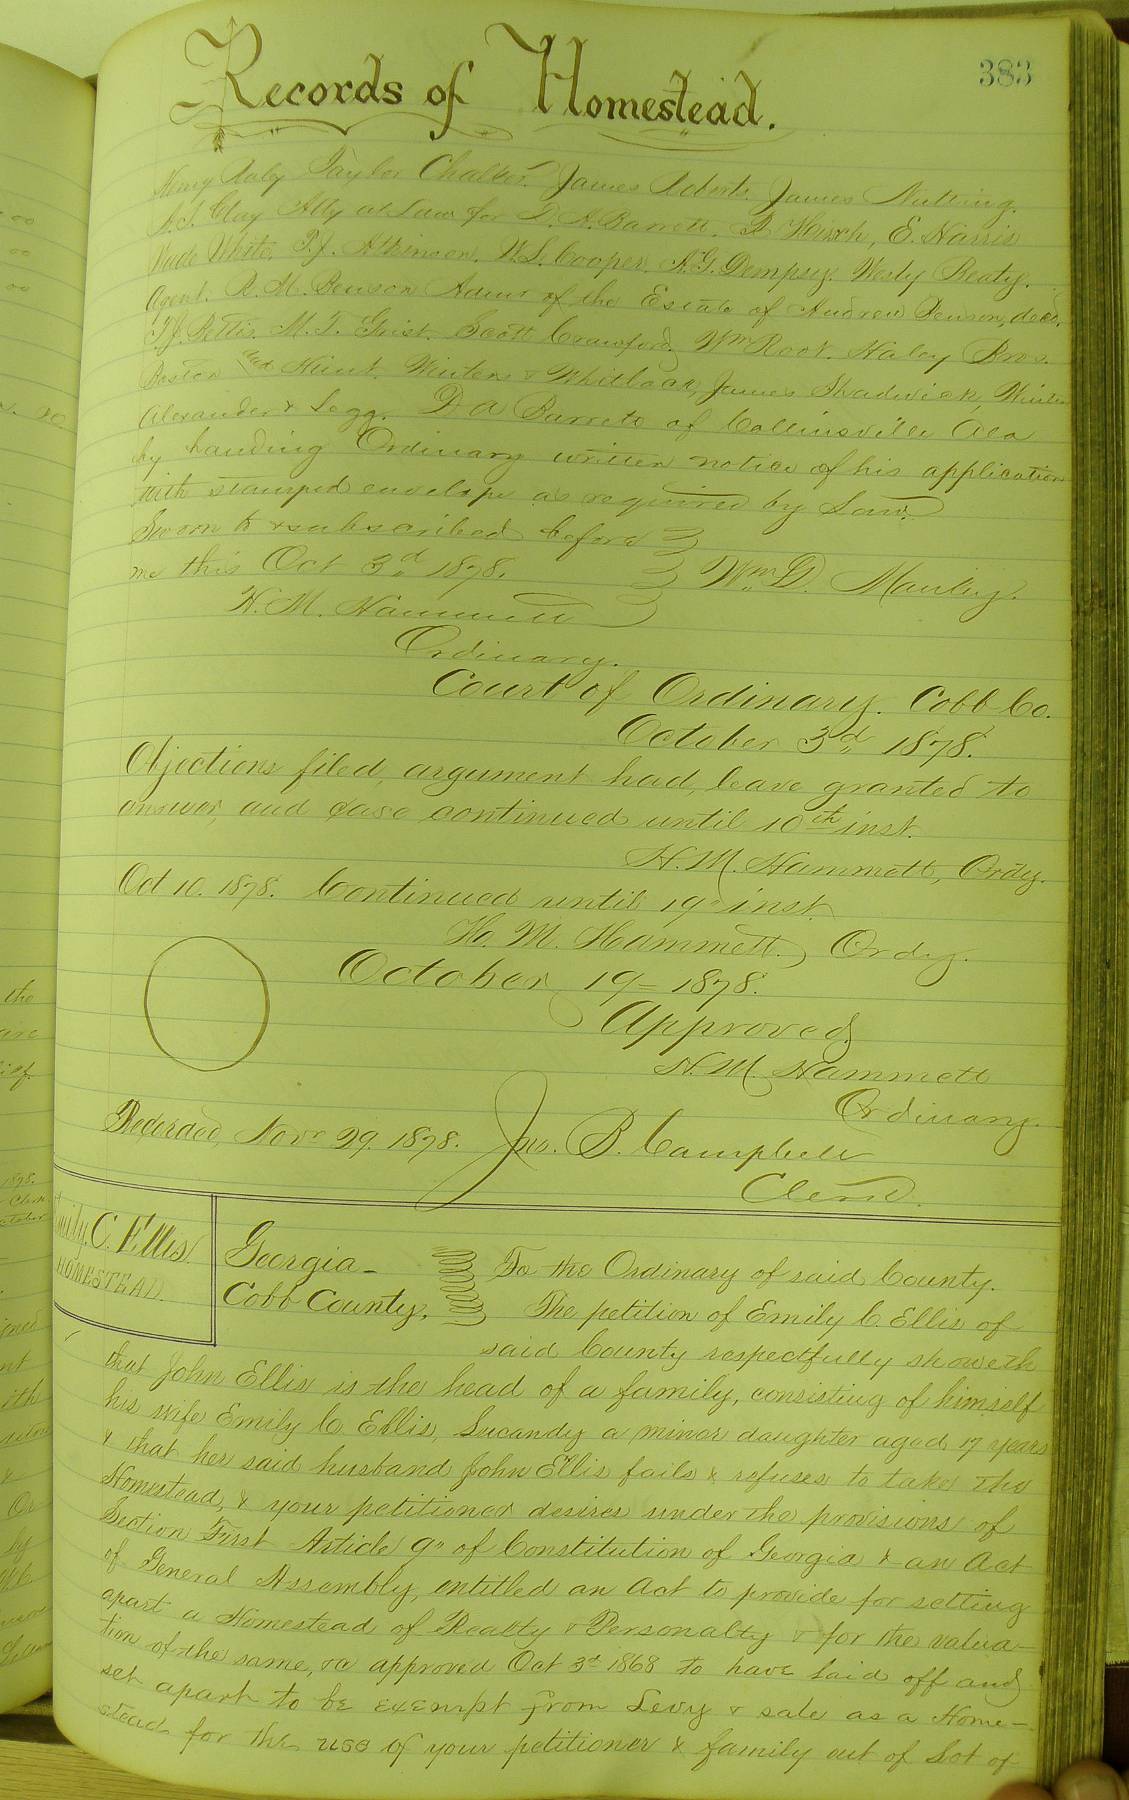 383
Records of Homestead.
Taylor Chalker. James Roberts. James Nutting.
Clay Atty at Law for D. A. Barrett. Hirsch, E. Harris
White, T. J. Atkinson, W. L. Cooper, Dempsy. Westy
Agent. R. M. Benson Admr of the Estate of Andrew Benson, decd.
M. T. Grist. Scott Crawford, Wm Root. Haley Bros.
Winters & Whitlock, James Shadwick,
Alexander & Legg. D A Barrett of Collinsville Ala
by handing Ordinary written notice of his application
with stamped envelope as required by Law.
Sworn to & subscribed before
me this Oct 3d 1878. Wm D.
H. M. Hammett
Ordinary.
Court of Ordinary. Cobb Co.
October 3d 1878.
Objections filed, argument had, leave granted to
answer, and case continued until 10th inst.
H. M. Hammett, Ordy.
Oct 10. 1878. Continued until 19" inst.
H. M. Hammett, Ordy.
October 19- 1878.
Approved
H. M. Hammett
Ordinary.
Recorded, Novr 29. 1878. Jno. B. Campbell
Clerk
Emily C. Ellis.
HOMESTEAD.
Georgia- To the Ordinary of said County.
Cobb County, The petition of Emily C. Ellis of
said County respectfully showeth
that John Ellis is the head of a family, consisting of himself
his wife Emily C. Ellis, Lucandy a minor daughter aged 17 years
& that her said husband John Ellis fails & refuses to take the
Homestead, & your petitioner desires under the provisions of
Section First Article 9" of Constitution of Georgia & an Act
of General Assembly, entitled an Act to provide for setting
apart a Homestead of Realty & Personalty & for the valua-
tion of the same, &c approved Oct 3d 1868 to have laid off and
set apart to be exempt from Levy & sale as a Home-
stead for the use of your petitioner & family out of Lot of